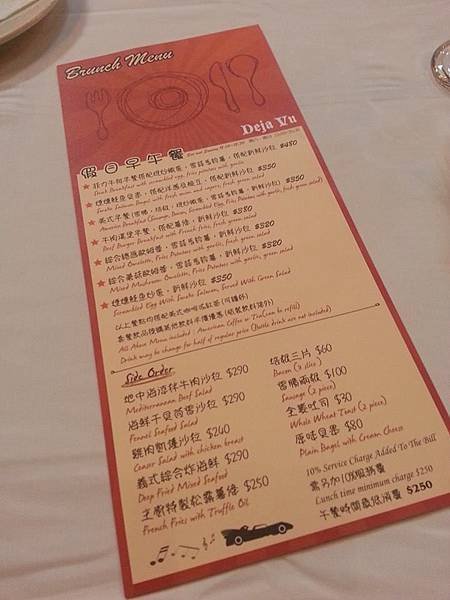 Brunch Menu
Deja Vu
假日早午餐
菲力牛排早餐搭配炒嫩蛋，雪話馬鈴薯，搭配新鮮沙拉 $480
Steak Breakfast with scrambled egg, fries potatoes with garlic
$350
Smoke Salmon Bagel with fresh onion and capers, fresh green salad
$350
牛肉漢堡早餐，搭配薯條，新鮮沙拉 $380
Beef Burger Breakfast with French fries, fresh green salad
新鮮沙拉 $320
Mixed Omelette, Fries Potatoes with garlic, fresh green salad
新鮮沙拉 $320
Mixed Mushroom Omelette, Fries Potatoes with garlic, green salad
煙燻鮭魚炒蛋，新鮮沙拉 $350
Scrambled Egg With Smoke Salmon, Served With Green Salad
以上餐點均搭配美式咖啡或紅茶(可續杯)
套餐飲品換購其他飲料半價優惠(瓶裝飲料除外)
All Above Menu included : American Coffee or Tea(can be refill)
Drink may be change for half of regular price (Bottle drink are not included)
Side Order
地中海涼拌牛肉沙拉 $290
Mediterranean Beef Salad
海鮮干貝茴香沙拉 $290
Fennel Seafood Salad
雞肉凱薩沙拉 $240
Ceaser Salad with chicken breast
義式綜合炸海鮮 $290
Deep Fried Mixed Seafood
主廚特製松露薯條 $250
French Fries with Truffle Oil
培根三片 $60
Bacon (3 slice)
香腸兩根 $100
Sausage (2 piece)
全麥吐司 $30
Whole Wheat Toast (2 piece)
原味貝果 $80
Plain Bagel with Cream Cheese
10% Service Charge Added To The Bill
需另加10%服務費
Lunch time minimum charge $250
午餐時間最低消費 $250